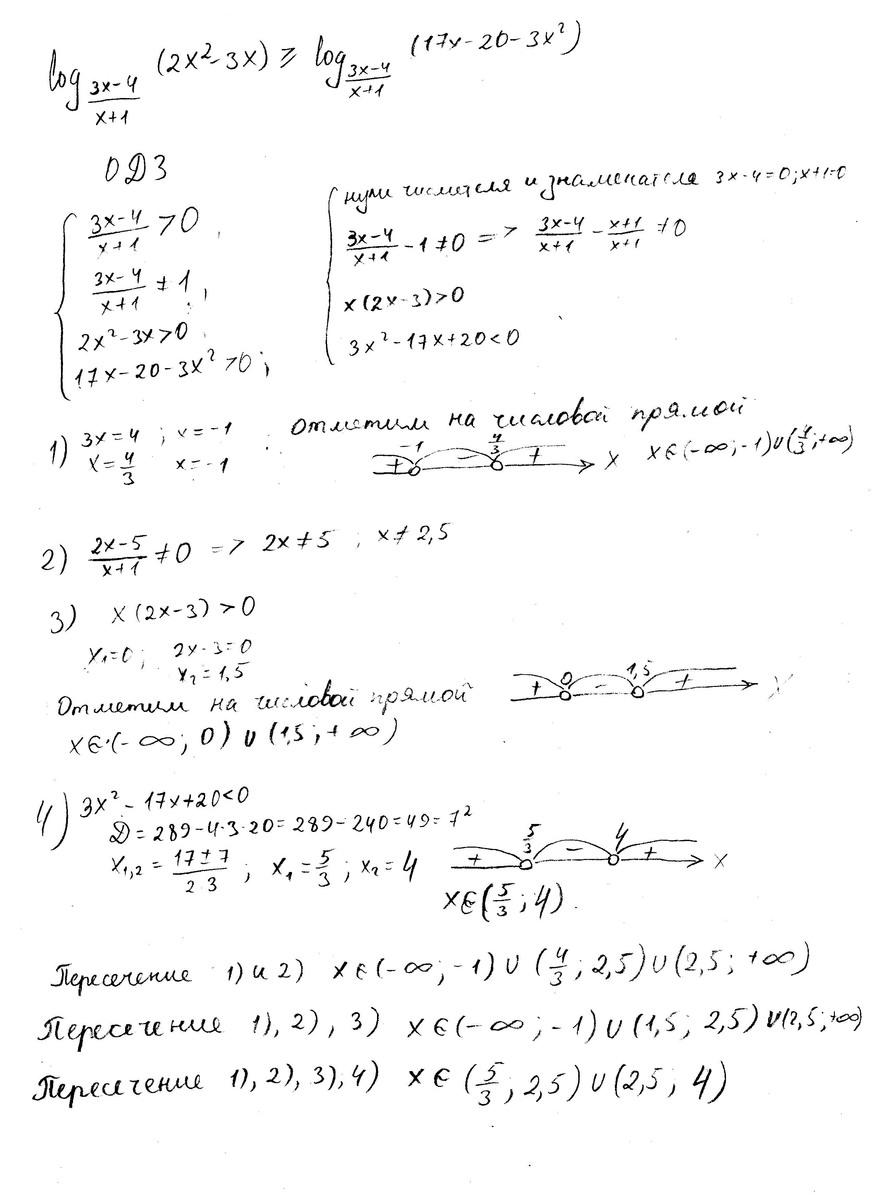 log_{(3x-4)/(x+1)} (2x²-3x) ≥ log_{(3x-4)/(x+1)} (17x-20-3x²)
ОДЗ
{ (3x-4)/(x+1) > 0,
(3x-4)/(x+1) ≠ 1,
2x²-3x>0
17x-20-3x²>0;
{ нули числителя и знаменателя 3x-4=0; x+1=0
(3x-4)/(x+1) - 1 ≠ 0 => (3x-4)/(x+1) - (x+1)/(x+1) ≠ 0
x(2x-3)>0
3x²-17x+20<0
1) 3x=4 ; x=-1
x=4/3 x=-1
Отметим на числовой прямой
-1 4/3
+ - + x x∈(-∞;-1)∪(4/3;+∞)
2) (2x-5)/(x+1) ≠ 0 => 2x≠5 ; x≠2,5
3) x(2x-3)>0
x₁=0; 2x-3=0
x₂=1,5
0 1,5
+ - + x
Отметим на числовой прямой
x∈(-∞; 0)∪(1,5;+∞)
4) 3x²-17x+20<0
Д=289-4·3·20=289-240=49=7²
x₁,₂=(17±7)/(2·3) ; x₁=5/3 ; x₂=4
5/3 4
+ - + x
x∈(5/3;4).
Пересечение 1) и 2) x∈(-∞;-1)∪(4/3;2,5)∪(2,5;+∞)
Пересечение 1), 2), 3) x∈(-∞;-1)∪(1,5;2,5)∪(2,5;+∞)
Пересечение 1), 2), 3), 4) x∈(5/3;2,5)∪(2,5;4)